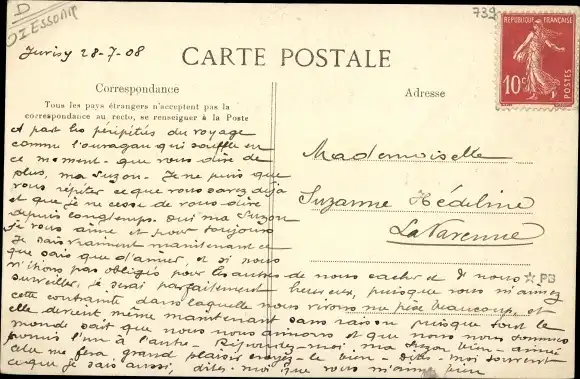 D
91 ESSONNE
739
Juvisy 28-7-08
CARTE POSTALE
RÉPUBLIQUE FRANÇAISE
10c
POSTES
Correspondance
Adresse
Tous les pays étrangers n'acceptent pas la
correspondance au recto, se renseigner à la Poste
et part les péripéties du voyage
comme l'ouragan qui souffle en
ce moment - que vous dire de
plus, ma Suzon. Je ne puis que
vous répéter ce que vous savez déjà
et que je ne cesse de vous dire
depuis longtemps. Oui ma Suzon
je vous aime et pour toujours
Je sais vraiment maintenant ce
que sais que d'aimer, et si nous
n'étions pas obligés pour les autres de nous cacher et nous
surveiller, je serai parfaitement heureux, puisque vous m'aimez
cette contrainte dans laquelle nous vivons me pèse beaucoup, et
elle devient même maintenant sans raison puisque tout le
monde sait que nous nous aimons et que nous nous sommes
promis l'un à l'autre. Répondez-moi ma Suzon bien aimée
cela me fera grand plaisir croyez-le bien - Dites-moi souvent
ce que je sais aussi, dites-moi que vous m'aimez bien
Mademoiselle
Suzanne Hédeline
La Varenne
PB